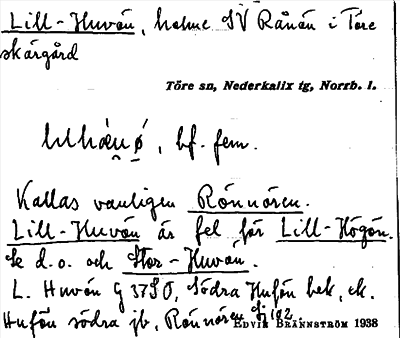 Lill-Huvön, holme SV Rånön i Töre
skärgård
Töre sn, Nederkalix tg, Norrb. l.
bf. fem.
Kallas vanligen Rönnören.
Lill-Huvön är fel för Lill-Högön.
Se d.o. och Stor-Huvön.
L. Huvön G 37SO, Södra Hufön hek, ek.
Hufön södra jb, Rönnören
EDVIN BRÄNNSTRÖM 1938